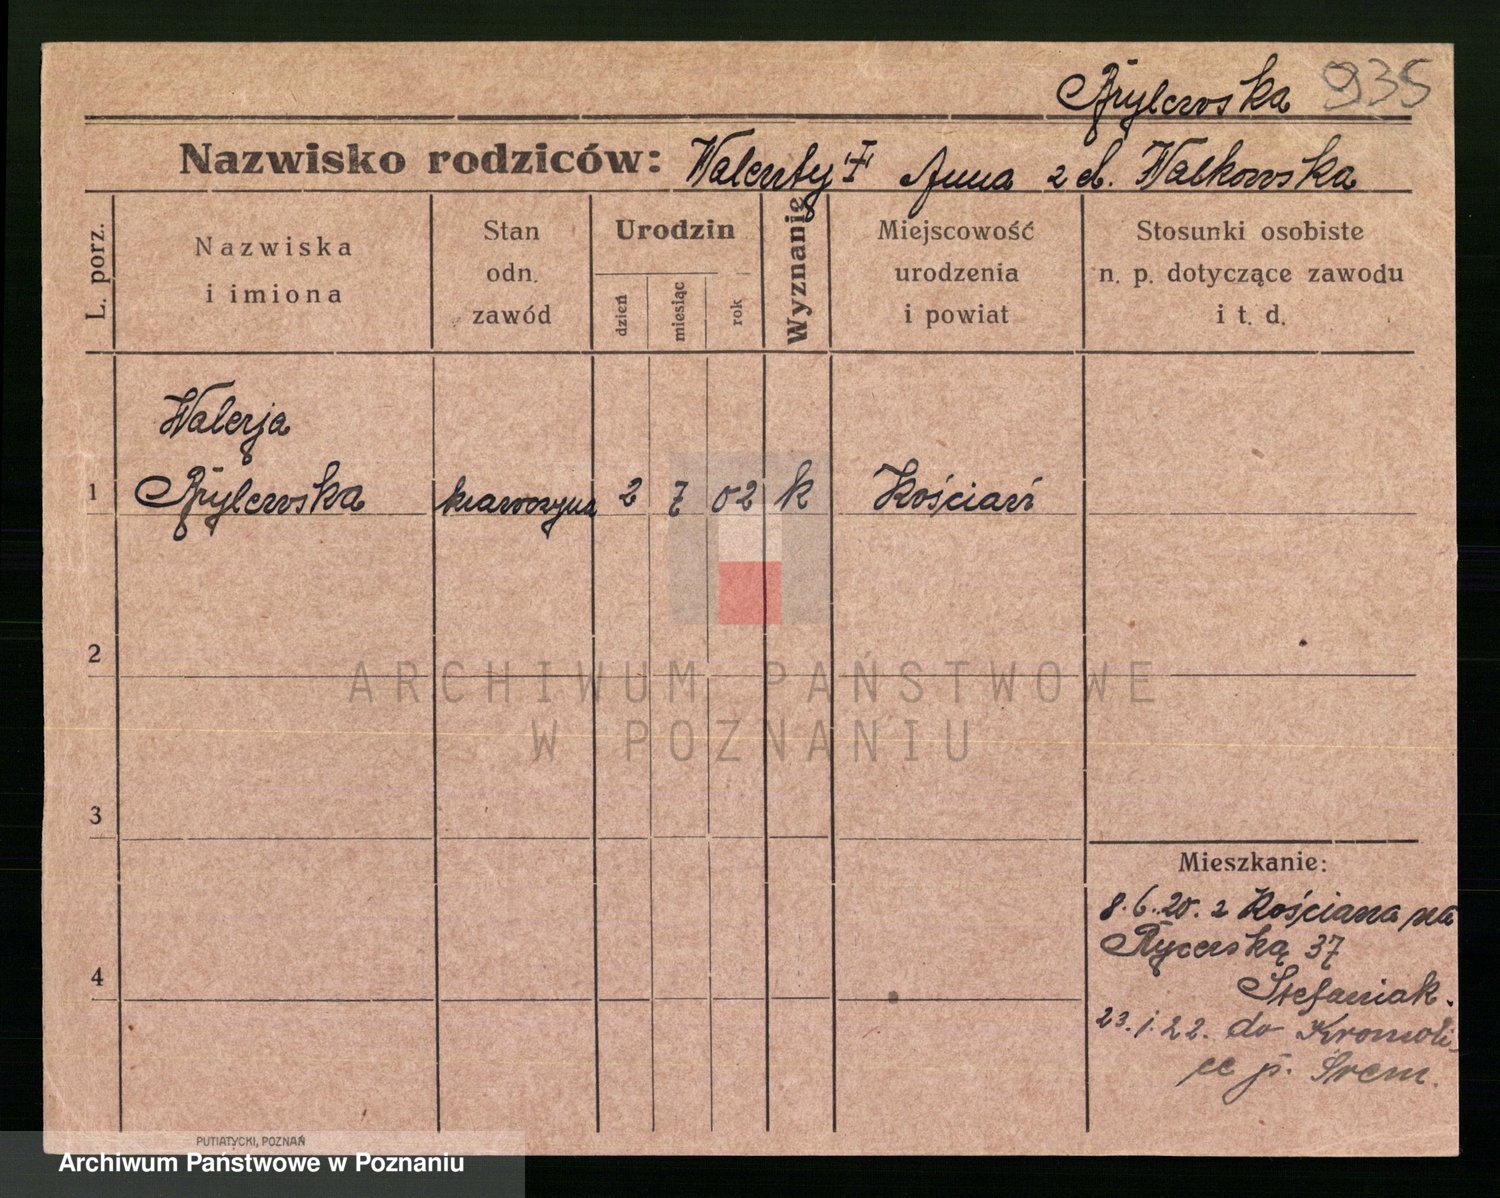 Brylewska 935
Nazwisko rodziców: Walenty "†" Anna z d. Walkowska
L. porz.
Nazwiska
i imiona
Stan
odn.
zawód
Urodzin
dzień
miesiąc
rok
Wyznanie
Miejscowość
urodzenia
i powiat
Stosunki osobiste
n. p. dotyczące zawodu
i t. d.
Walerja
1 Brylewska krawczyna 2 7 02 k Kościań
2
3
4
Mieszkanie:
8.6.20. z Kościana na
Rycerską 37
Stefaniak.
23.1.22. do Kromoli-
ce p. Śrem.
ARCHIWUM PAŃSTWOWE
W POZNANIU
PUTIATYCKI, POZNAŃ
Archiwum Państwowe w Poznaniu